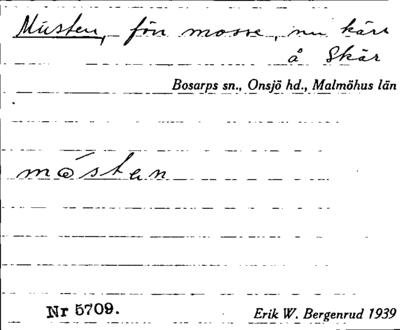 Müsten, förr mosse, nu kärr
å Skär
Bosarps sn., Onsjö hd., Malmöhus län
mǿstan
Nr 5709.
Erik W. Bergenrud 1939